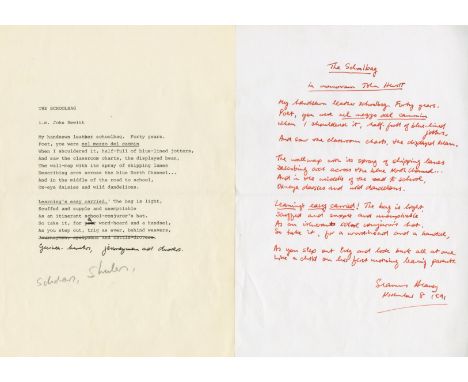 THE SCHOOLBAG
i.m. John Hewitt
My handsome leather schoolbag. Forty years.
Poet, you were nel mezzo del cammin
When I shouldered it, half-full of blue-lined jotters,
And saw the classroom charts, the displayed bean,
The wall-map with its spray of shipping lanes
Describing arcs across the blue North Channel...
And in the middle of the road to school,
Ox-eye daisies and wild dandelions.
Learning's easy carried. The bag is light,
Scuffed and supple and unemptiable
As an itinerant school-conjuror's hat.
So take it, for a word-hoard and a handsel,
As you step out trig as ever, behind
The Schoolbag
In memoriam John Hewitt
My handsome leather schoolbag. Forty years.
Poet, you were nel mezzo del cammin
When I shouldered it, half-full of blue-lined
jotters,
And saw the classroom charts, the displayed bean,
The wallmap with its spray of shipping lanes
Describing arcs across the blue North Channel...
And in the middle of the road to school,
Ox-eye daisies and wild dandelions.
Learning's easy carried! The bag is light,
Scuffed and supple and unemptiable
As an itinerant school conjuror's hat.
So take it, for a wordhoard and a handsel,
As you step out trig and look back all at once
Like a child on his first morning leaving parents.
Seamus Heaney
November 8 1991